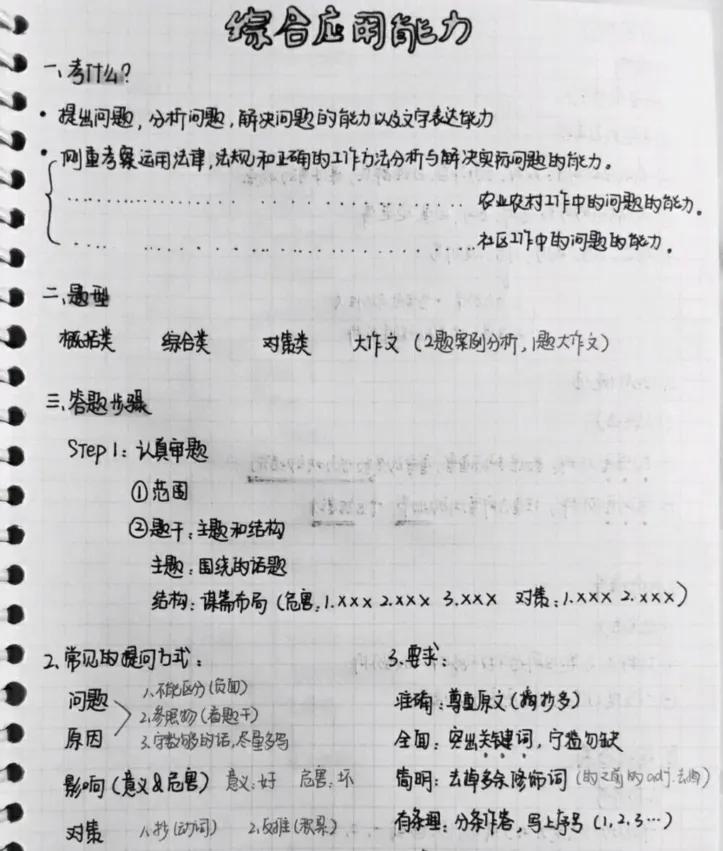 综合应用能力
一、考什么?
· 提出问题,分析问题,解决问题的能力以及文字表达能力
· 侧重考察运用法律,法规和正确的工作方法分析与解决实际问题的能力。
……………………农业农村工作中的问题的能力。
……………………社区工作中的问题的能力。
二、题型
概括类 综合类 对策类 大作文(2题案例分析,1题大作文)
三、答题步骤
Step1:认真审题
①范围
②题干:主题和结构
主题:围绕的话题
结构:谋篇布局(危害:1.xxx 2.xxx 3.xxx 对策:1.xxx 2.xxx)
2.常见的提问方式:
问题 1.不能区分(负面)
2.参照物(看题干)
原因 3.字数够的话,尽量多写
影响(意义&危害) 意义:好 危害:坏
对策 1.抄(动词) 2.反推(积累)
3.要求:
准确:尊重原文(摘抄多)
全面:突出关键词,宁滥勿缺
简明:去掉多余修饰词(的之前的adj.去掉)
有条理:分条作答,写上序号(1,2,3…)